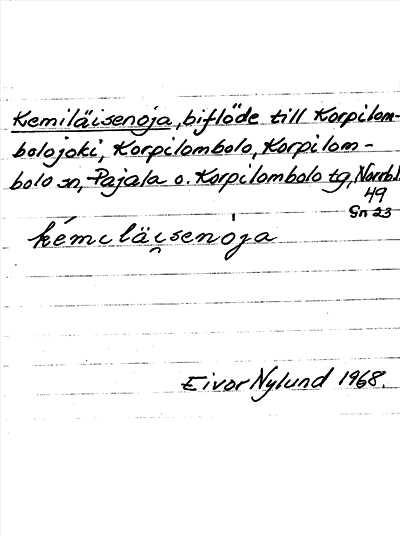 Kemiläisenoja, biflöde till Korpilom-
bolojoki, Korpilombolo, Korpilom-
bolo sn, Pajala o. Korpilombolo tg, Norrb.l.
49
Sn 23
kémiläi̯seno̍ja
Eivor Nylund 1968.